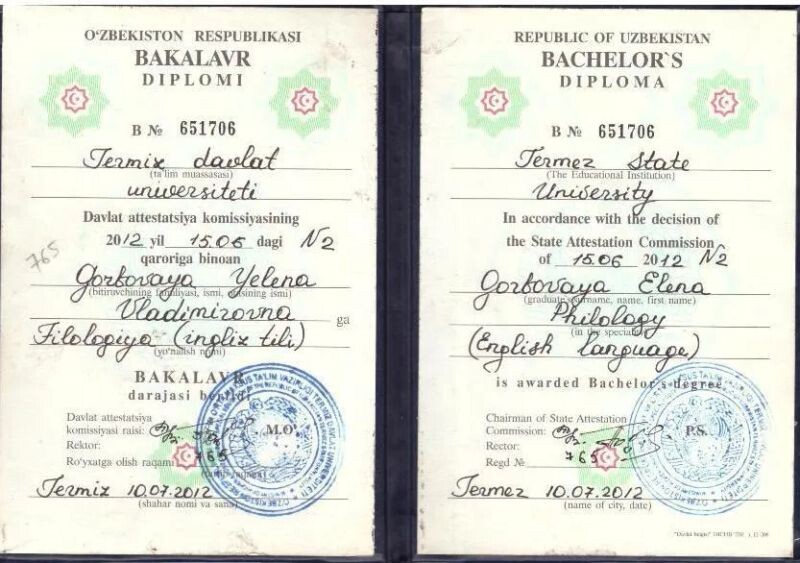 O‘ZBEKISTON RESPUBLIKASI
BAKALAVR
DIPLOMI
B № 651706
Termiz davlat
(ta'lim muassasasi)
universiteti
Davlat attestatsiya komissiyasining
2012 yil 15.06 dagi N2
qaroriga binoan
765
Gorbovaya Yelena
(bitiruvchining familiyasi, ismi, otasining ismi)
Vladimirovna ga
Filologiya (ingliz tili)
(yo'nalish nomi)
BAKALAVR
darajasi berildi
Davlat attestatsiya
komissiyasi raisi:
Rektor:
M.O‘.
Ro‘yxatga olish raqami 765
Termiz 10.07.2012
(shahar nomi va sana)
REPUBLIC OF UZBEKISTAN
BACHELOR`S
DIPLOMA
B № 651706
Termez State
(The Educational Institution)
University
In accordance with the decision of
the State Attestation Commission
of 15.06 2012 N2
Gorbovaya Elena
(graduate surname, name, first name)
Philology
(in the speciality)
(English language)
is awarded Bachelor's degree
Chairman of State Attestation
Commission:
Rector:
P.S.
Regd № 765
Termez 10.07.2012
(name of city, date)